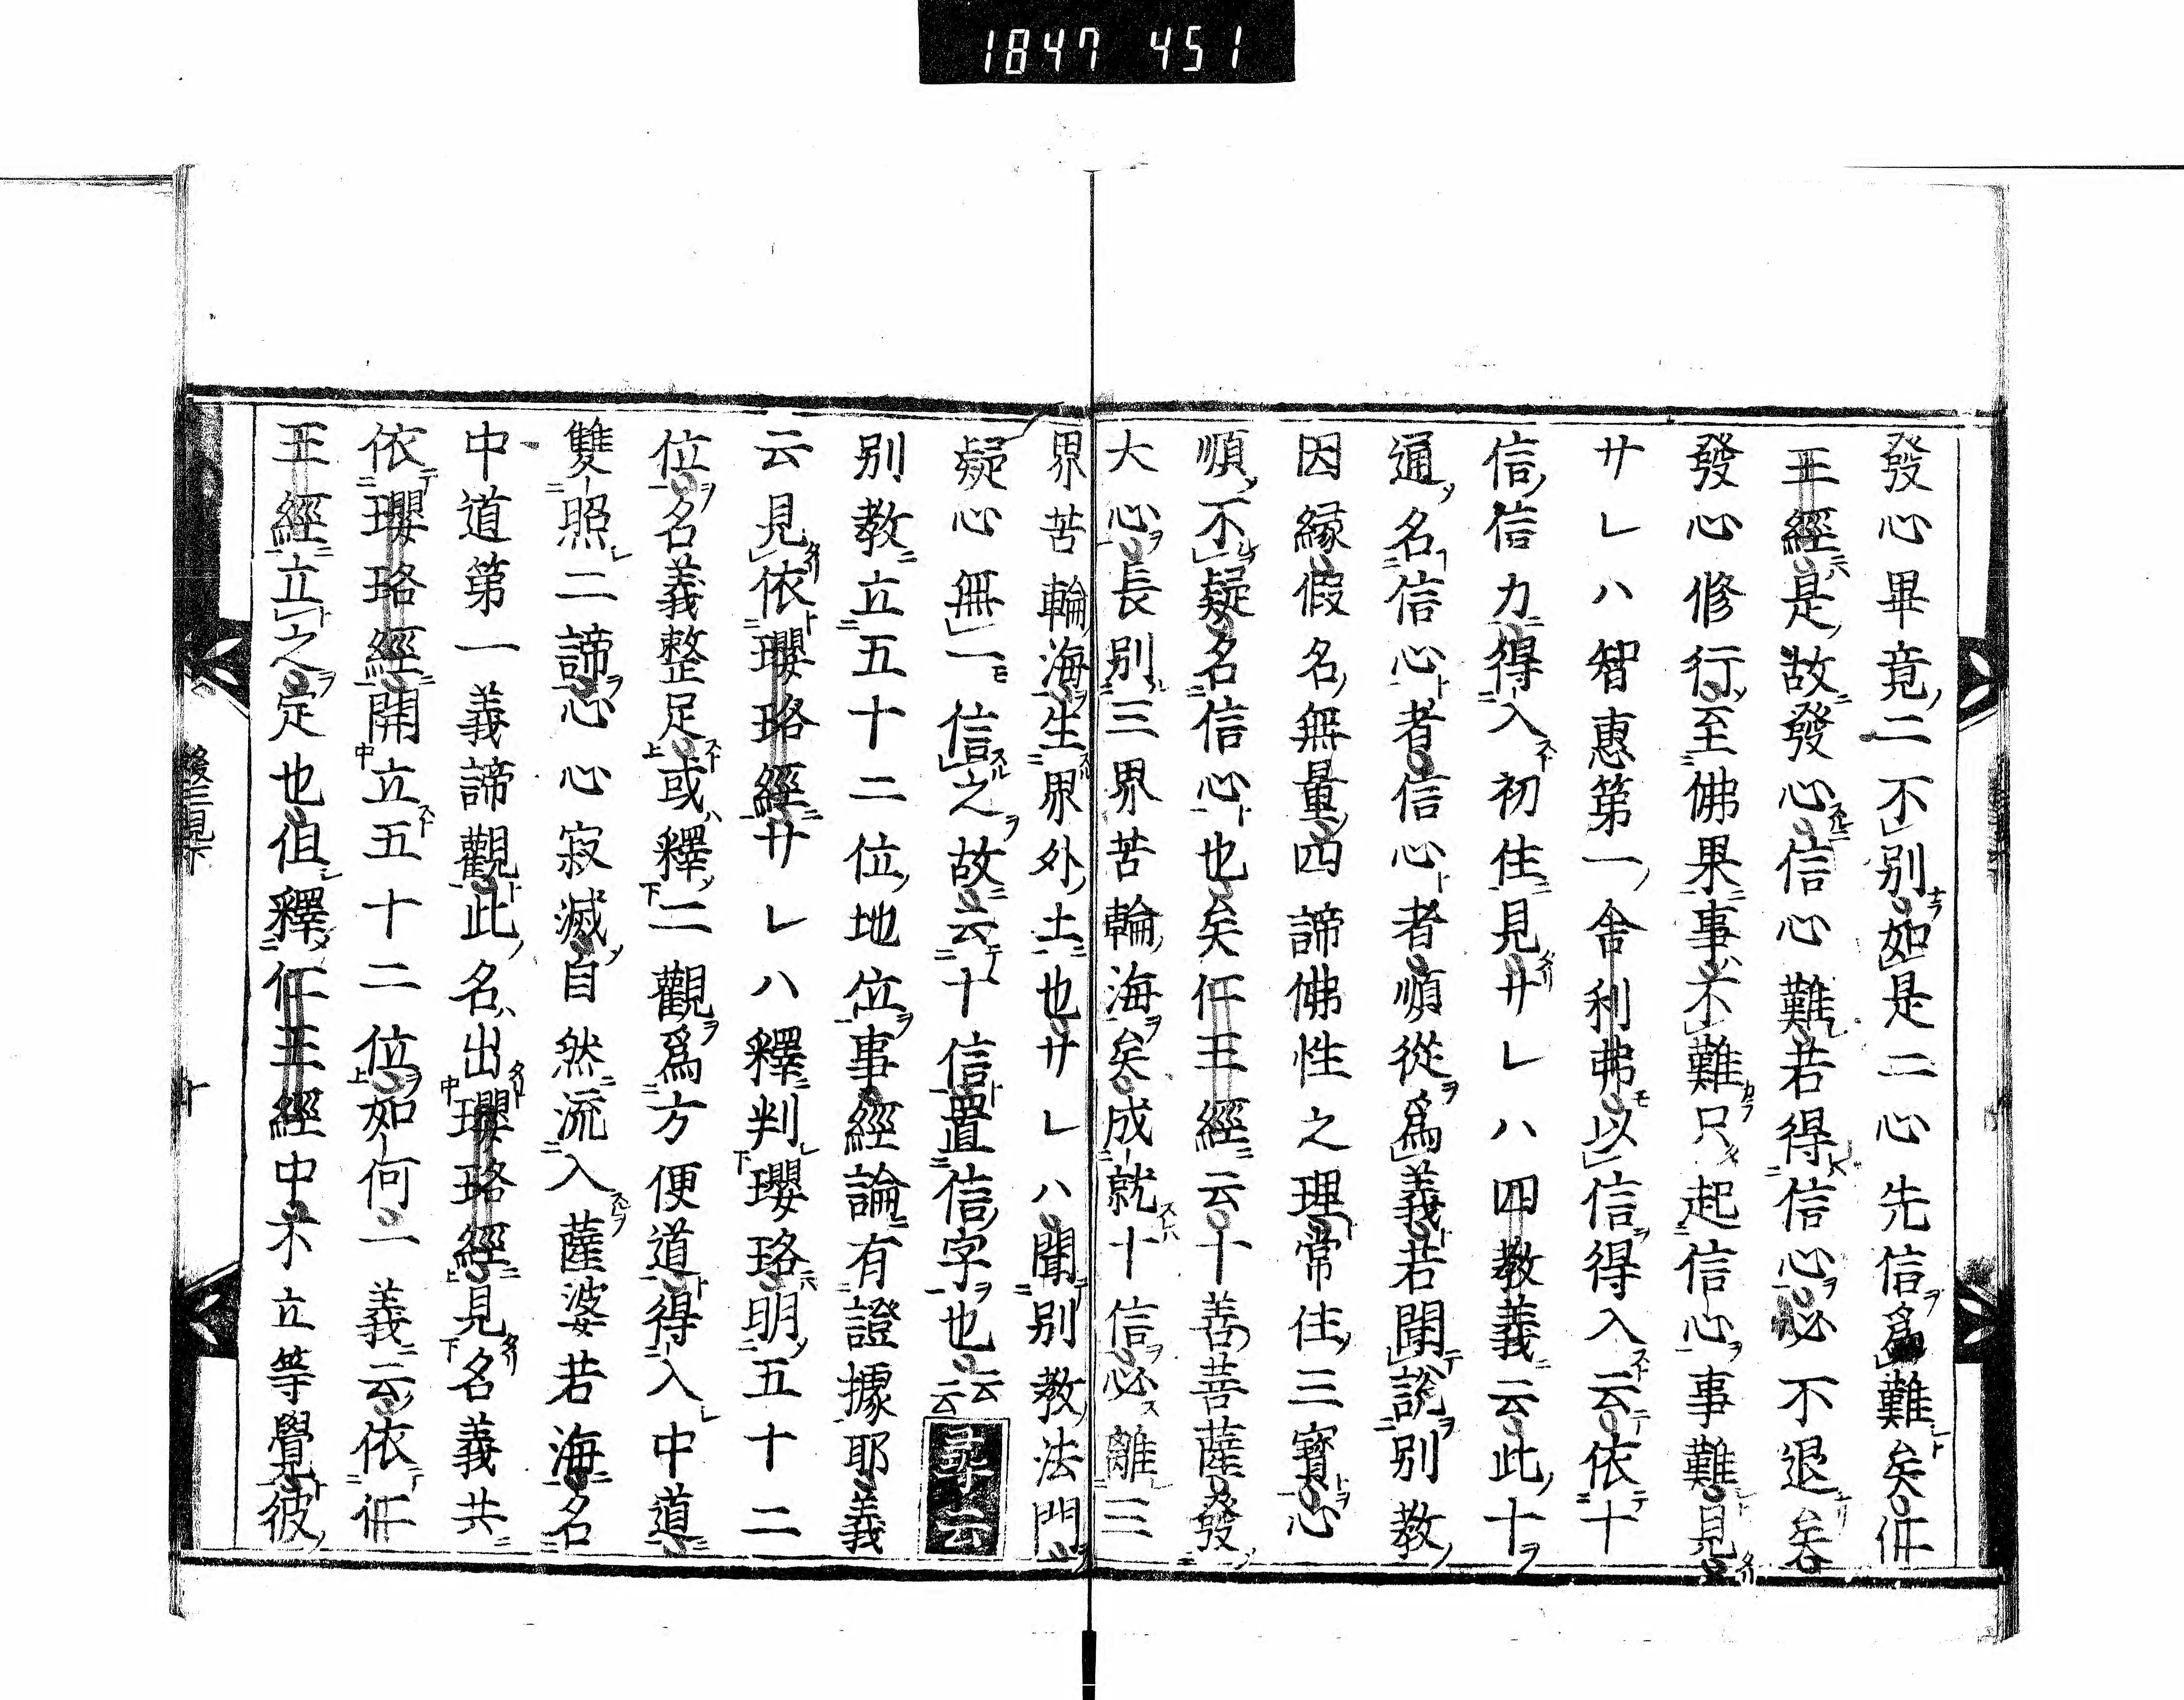 1847 451
發心畢竟二不別如是二心先信爲難矣仁
王經是故發心信心難若得信心必不退矣
發心修行至佛果事不難只起信心事難見
廿レハ智惠第一舍利弗以信得入云依十
信信力得入初住見廿レハ四教義云此十
通名信心者信心者順從爲義若聞說別教
因縁假名無量四諦佛性之理常住三寶心
順不疑名信心也矣仁王經云十善菩薩發
大心長別三界苦輪海矣成就十信必離三
界苦輪海生界外土也廿レハ聞別教法門
疑心無一信之故云十信置信字也云云 尋云
別教立五十二位地位事經論有證據耶義
云見依瓔珞經廿レハ釋判瓔珞明五十二
位名義整足或釋二觀爲方便道得入中道
雙照二諦心心寂滅自然流入薩婆若海名
中道第一義諦觀此名出瓔珞經見名義共
依瓔珞經開立五十二位如何一義云依仁
王經立之定也但釋仁王經中不立等覺彼